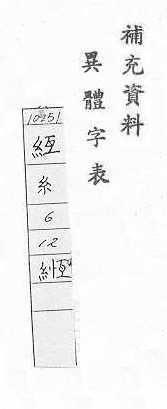 補充資料
異體字表
10951
絚
糸
6
12